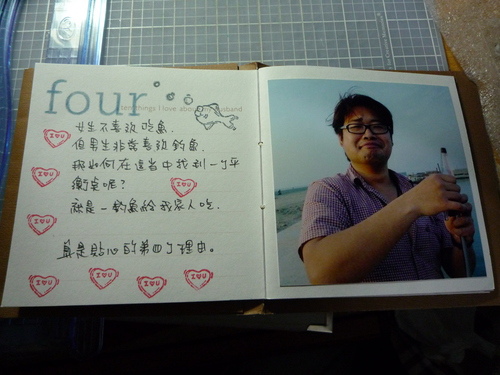 four
ten things I love about husband
女生不喜歡吃魚.
但男生非常喜歡釣魚.
那如何在這者中找到一个平
衡奌呢?
就是一釣魚給我家人吃.
真是貼心的第四个理由。
I♥U
I♥U
I♥U
I♥U
I♥U
I♥U
I♥U
I♥U